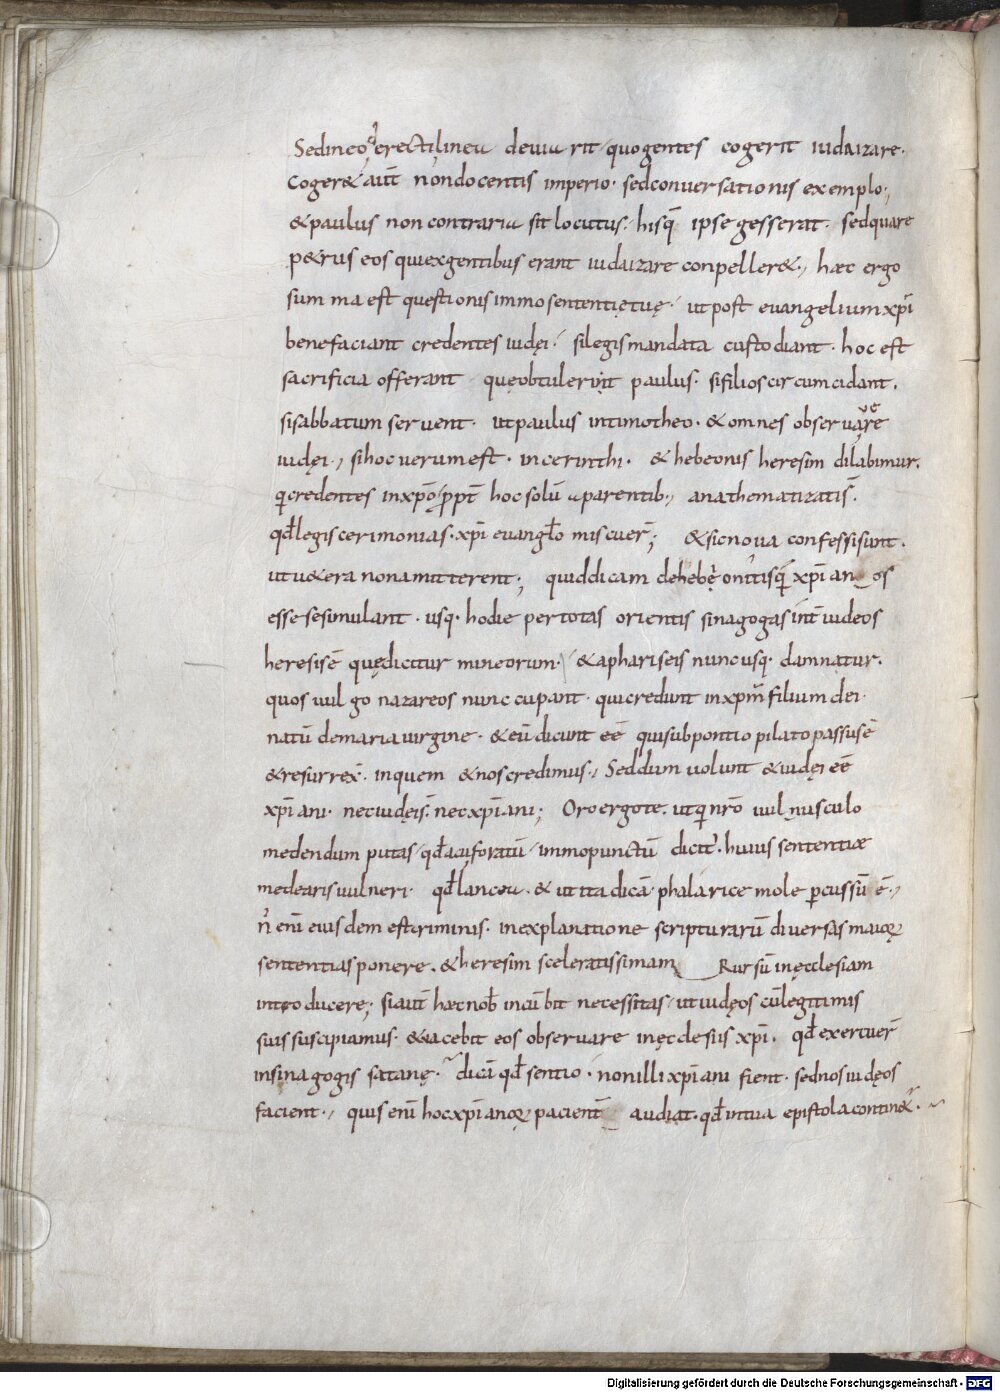 Sedineo qd erecti linea deuiarit quo gentes cogerit iudaizare.
Coger& aut̄ non docentis imperio. sed conuersationis exemplo;
& paulus non contraria sit locutus. hisq̄ ipse gesserat. sed quare
p&rus eos qui ex gentibus erant iudaizare conpeller&., haec ergo
summa est questionis immo sententię tuę. ut post euangelium xp̄i
bene faciant credentes iudęi. si legis mandata custodiant. hoc est
sacrificia offerant quę obtulerunt paulus. si filios circumcidant.
si sabbatum seruent. ut paulus in timotheo. & omnes obseruauere
iudęi., si hoc uerum est. in cerinthi. & hebeonis heresim dilabimur.
qi credentes in xp̄o ppt̄ hoc solū a parentib., anathematizati s̄.
qđ legis cerimonias. xp̄i euanglo miscuer̄; & sic noua confessi sunt.
ut u&era non amitterent; quid dicam de hebęonitis qi xp̄ianos
esse se simulant. usq. hodie per totas orientis sinagogas int̄ iudeos
heresis ē quę dicitur mineorum. & a phariseis nunc usq. damnatur.
quos uulgo nazareos nunccupant. qui credunt in xpm̄ filium dei.
natū de maria uirgine. & eū dicunt eē qui sub pontio pilato passus ē
& resurrex̄. in quem & nos credimus., Sed dum uolunt & iudęi eē
xp̄iani. nec iudęi s̄. nec xp̄iani; Oro ergo te. ut qi nr̄o uulnusculo
medendum putas qđ acu foratū immo punctū dicit̄. huius sententiae
medearis uulneri. qđ lancea. & ut ita dicā phalarice mole pcussū ē.,
n̄ enī eiusdem est criminis. in explanatione scripturarū diuersas maioꝝ
sententias ponere. & heresim sceleratissimam Rursū in ęcclesiam
introducere; si aut̄ haec nob̄ incūbit necessitas ut iudęos cū legitimis
suis suscipiamus. & iacebit eos obseruare in ęcclesiis xp̄i. qđ exercuer̄
in sinagogis satanę. dicā qđ sentio. non illi xp̄iani fient. sed nos iudęos
facient., quis enī hoc xp̄ianoꝝ pacient̄ audiat. qđ in tua epistola contin&̄.
Digitalisierung gefördert durch die Deutsche Forschungsgemeinschaft - DFG